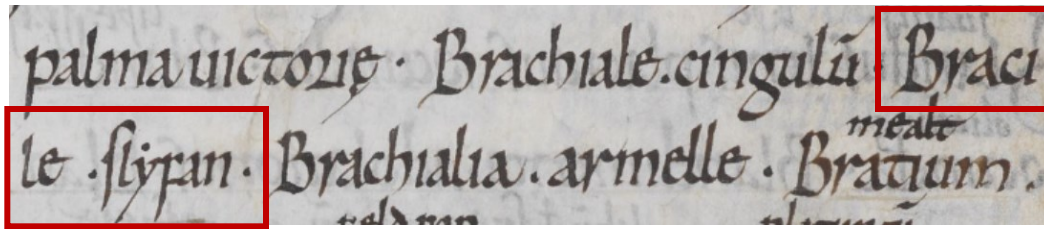 palma uictorię · Brachiale. cingulū · Braci
mealt
le . slẏfan · Brachialia . armelle · Bratium .